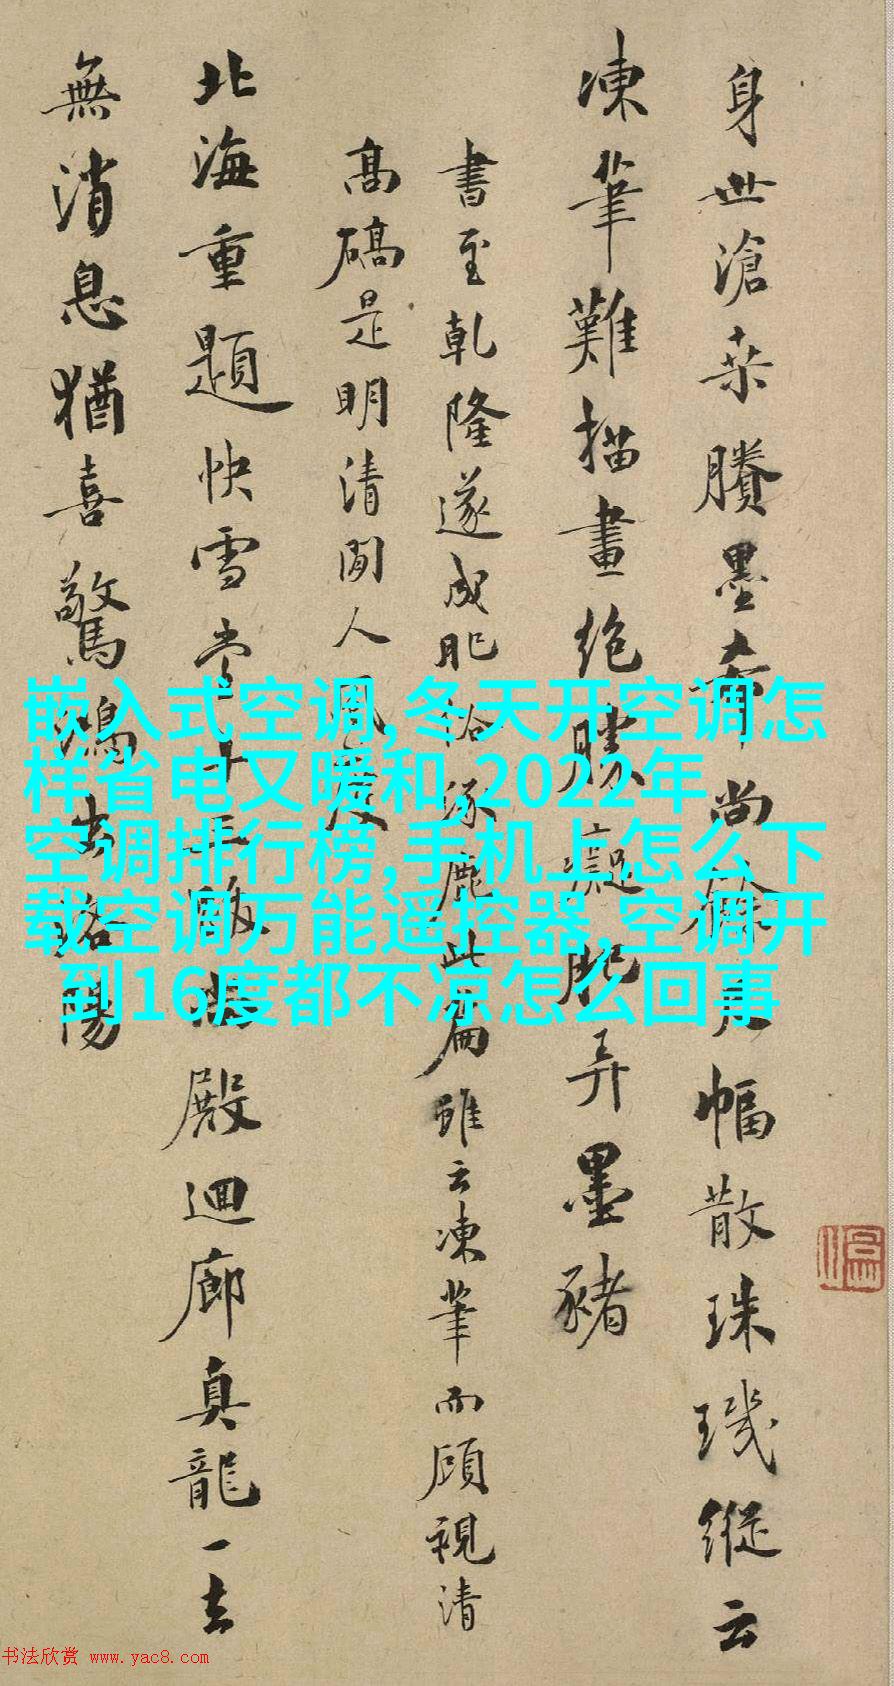 身世滄桑賸墨尚餘幅散珠璣縱云
凍筆難描畫絶勝癡肥弄墨豬
書至乾隆遂成肥俗涿鹿此篇雖云凍筆而顧視清
高碻是明清間人風度
北海重題快雪堂殿迴廊真龍一去
無消息猶喜驚鴻陽
嵌入式空调,冬天开空调怎
样省电又暖和,2022年
空调排行榜,手机上怎么下
载空调万能遥控器,空调开
到16度都不凉怎么回事
书法欣赏 www.yac8.com